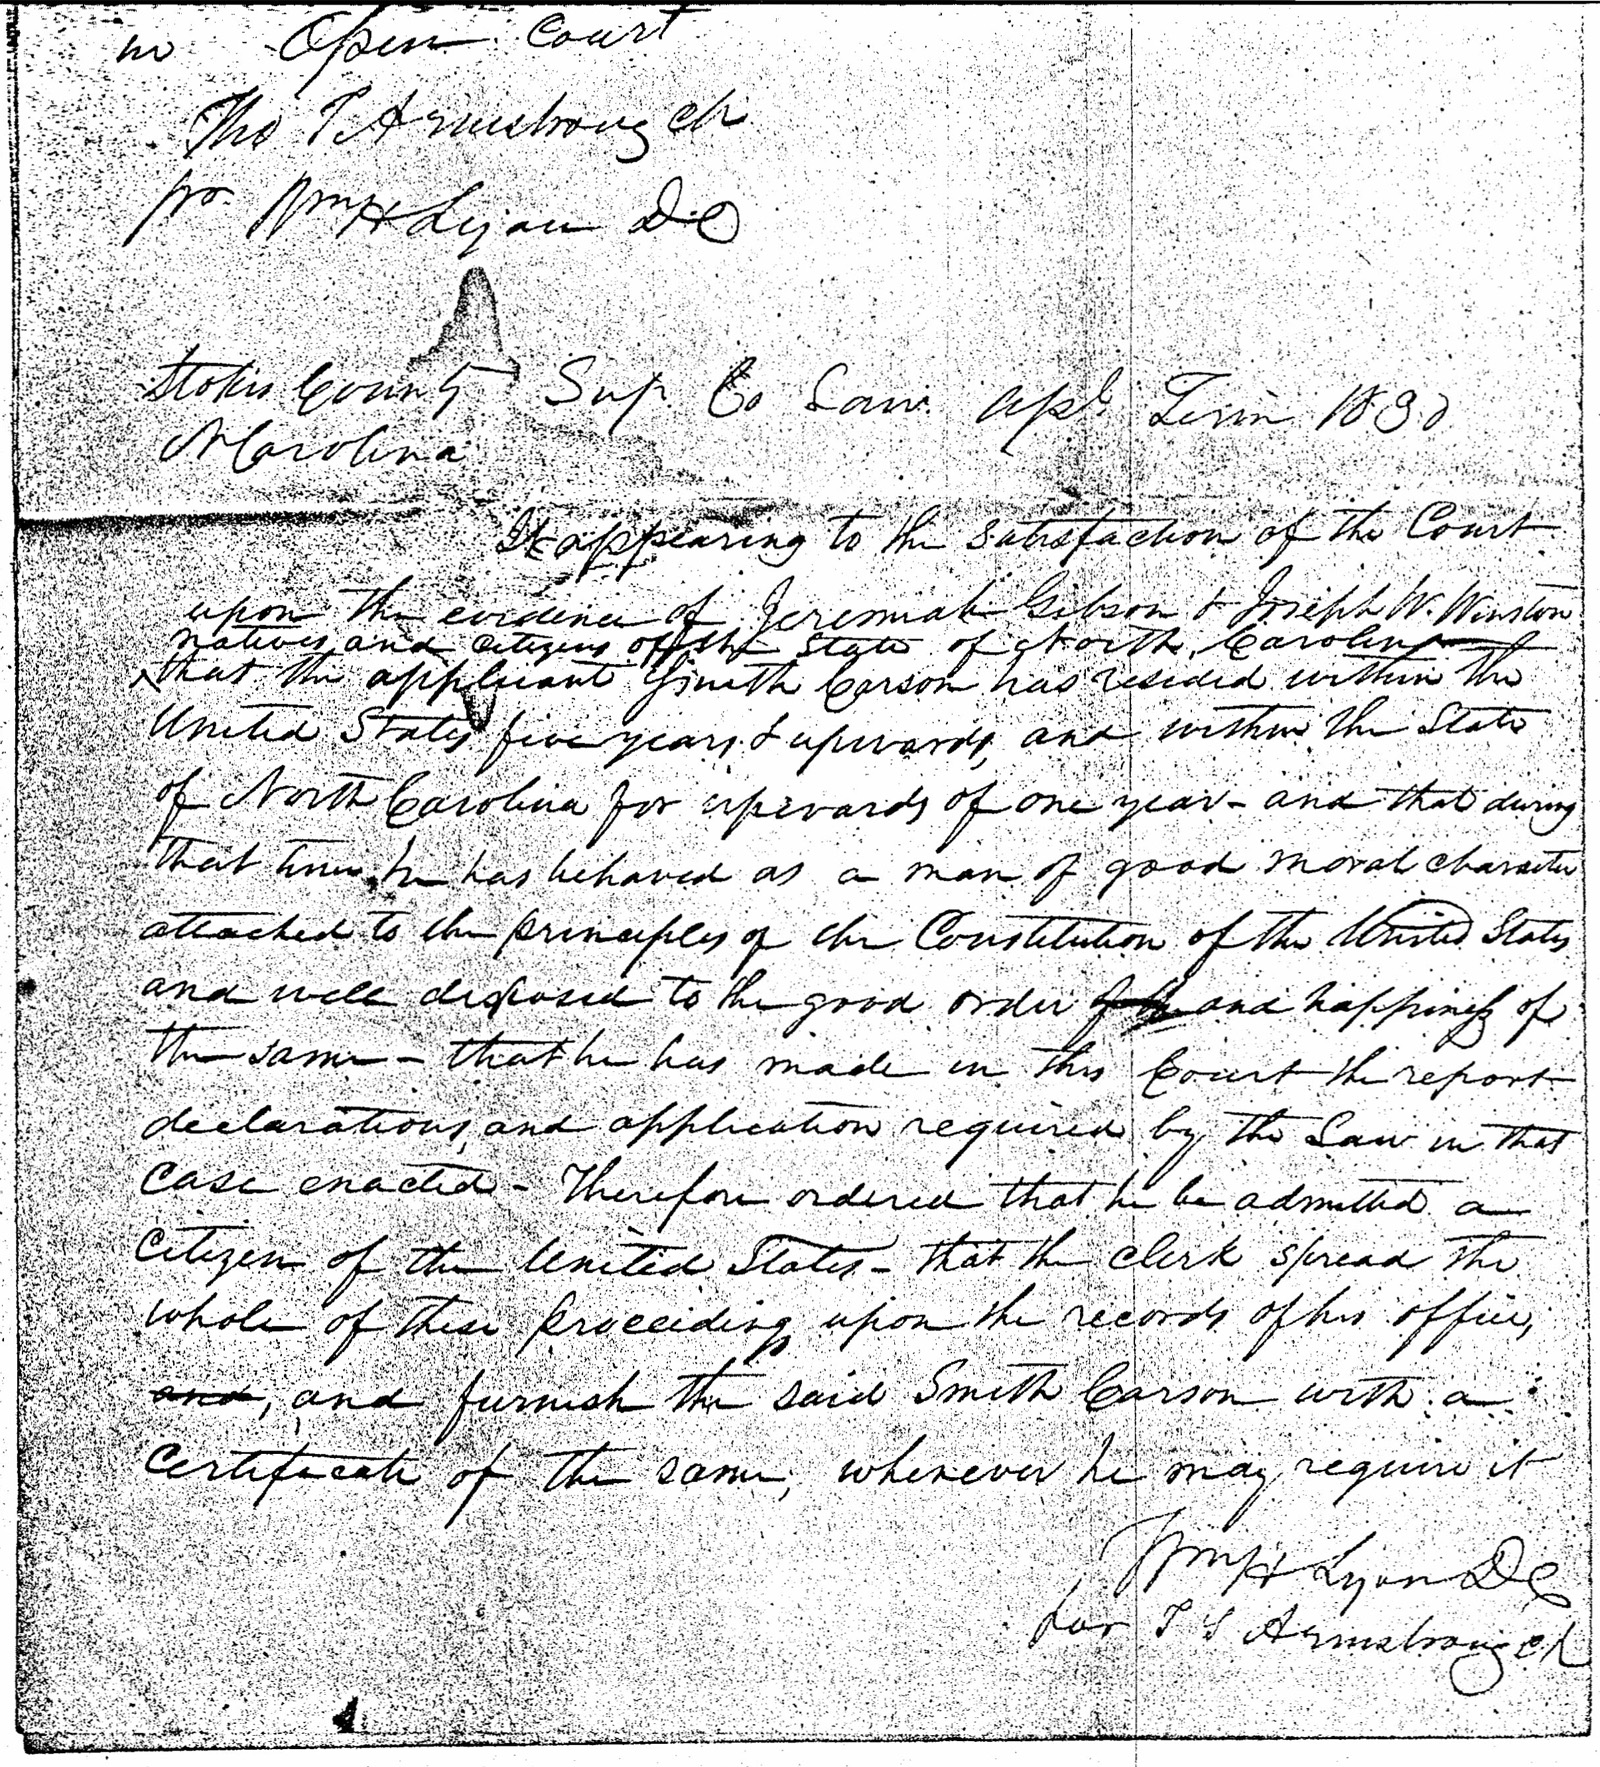 in Open Court
Tho T. Armstrong Clk
pr. Wm H Lyon D C
Stokes County Sup. Co Law. Apl. Term 1830
N Carolina
It appearing to the satisfaction of the Court
upon the evidence of Jeremiah Gibson & Joseph W. Winston
natives and citizens of the State of North Carolina
that the applicant Smith Carson has resided within the
United States five years & upwards, and within the State
of North Carolina for upwards of one year - and that during
that time, he has behaved as a man of good moral character
attached to the principles of the Constitution of the United States
and well disposed to the good order and happiness of
the same - that he has made in this Court the report
declarations, and application required by the Law in that
case enacted - Therefore ordered that he be admitted a
Citizen of the United States - that the clerk spread the
whole of these proceedings upon the records of his office,
and, and furnish the said Smith Carson with a
Certificate of the same, whenever he may require it
Wm H Lyon D C
for T T Armstrong Clk